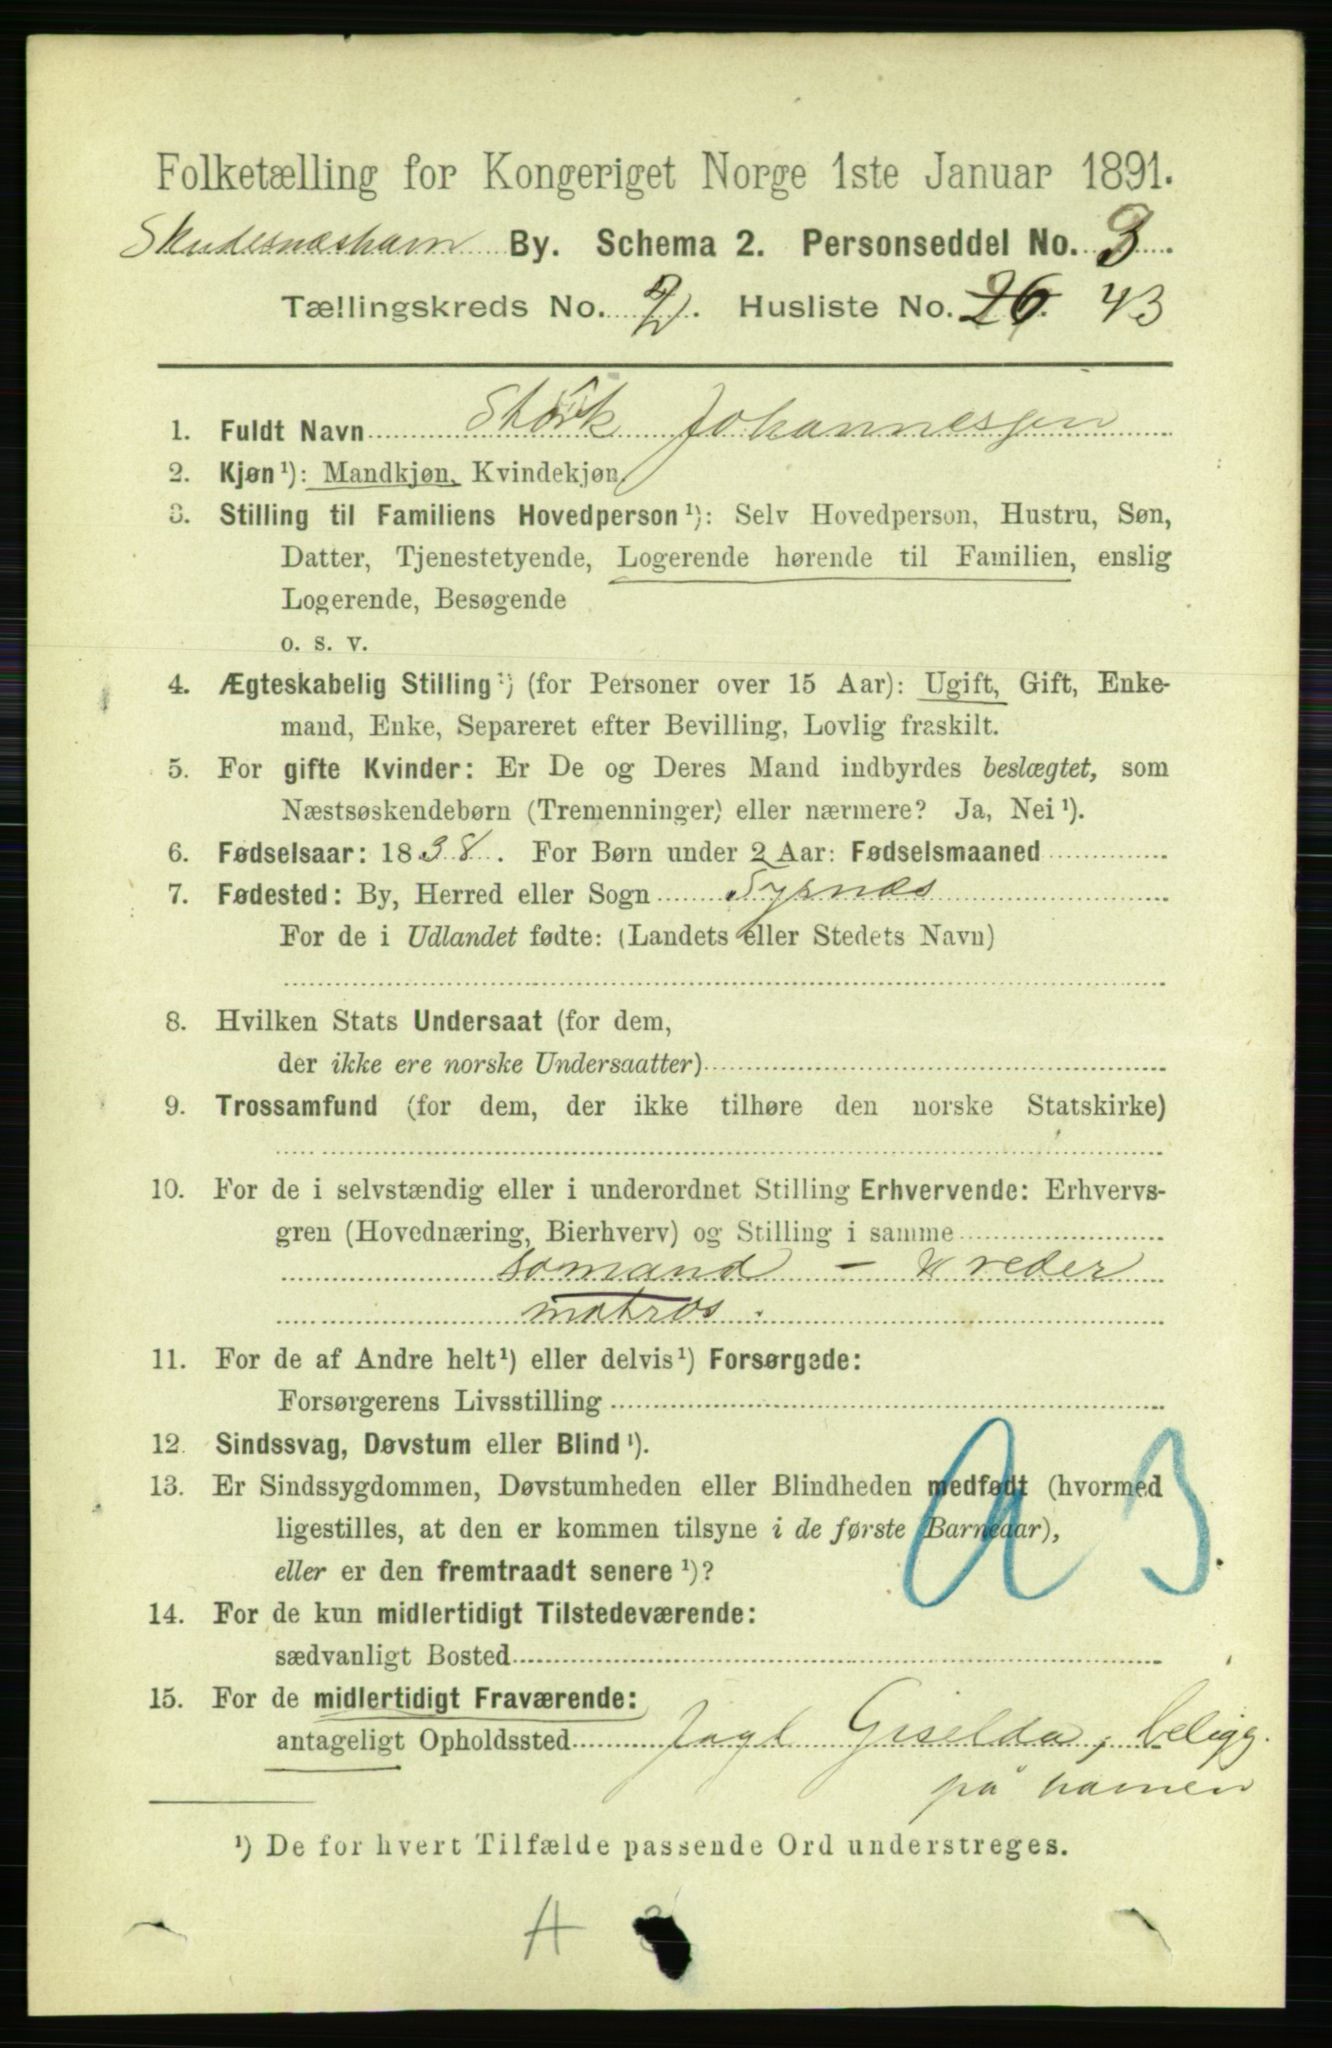 Folketælling for Kongeriget Norge 1ste Januar 1891.
Skudesnæshavn By. Schema 2. Personseddel No. 3.
Tællingskreds No. 2. Husliste No. 26. 43
1. Fuldt Navn Johannessen
2. Kjøn ¹): Mandkjøn, Kvindekjøn
3. Stilling til Familiens Hovedperson ¹): Selv Hovedperson, Hustru, Søn,
Datter, Tjenestetyende, Logerende hørende til Familien, enslig
Logerende, Besøgende
o. s. v.
4. Ægteskabelig Stilling ¹) (for Personer over 15 Aar): Ugift, Gift, Enke-
mand, Enke, Separeret efter Bevilling, Lovlig fraskilt.
5. For gifte Kvinder: Er De og Deres Mand indbyrdes beslægtet, som
Næstsøskendebørn (Tremenninger) eller nærmere? Ja, Nei ¹).
6. Fødselsaar: 1838. For Børn under 2 Aar: Fødselsmaaned
7. Fødested: By, Herred eller Sogn Tysnæs
For de i Udlandet fødte: (Landets eller Stedets Navn)
8. Hvilken Stats Undersaat (for dem,
der ikke ere norske Undersaatter)
9. Trossamfund (for dem, der ikke tilhøre den norske Statskirke)
10. For de i selvstændig eller i underordnet Stilling Erhvervende: Erhvervs-
gren (Hovednæring, Bierhverv) og Stilling i samme
sømand - reder
matros.
11. For de af Andre helt ¹) eller delvis ¹) Forsørgede:
Forsørgerens Livsstilling
12. Sindssvag, Døvstum eller Blind ¹).
13. Er Sindssygdommen, Døvstumheden eller Blindheden medfødt (hvormed
ligestilles, at den er kommen tilsyne i de første Barneaar),
eller er den fremtraadt senere ¹)?
14. For de kun midlertidigt Tilstedeværende:
sædvanligt Bosted
15. For de midlertidigt Fraværende:
antageligt Opholdssted Jagt Giselda, beligg.
på havnen
¹) De for hvert Tilfælde passende Ord understreges.
A